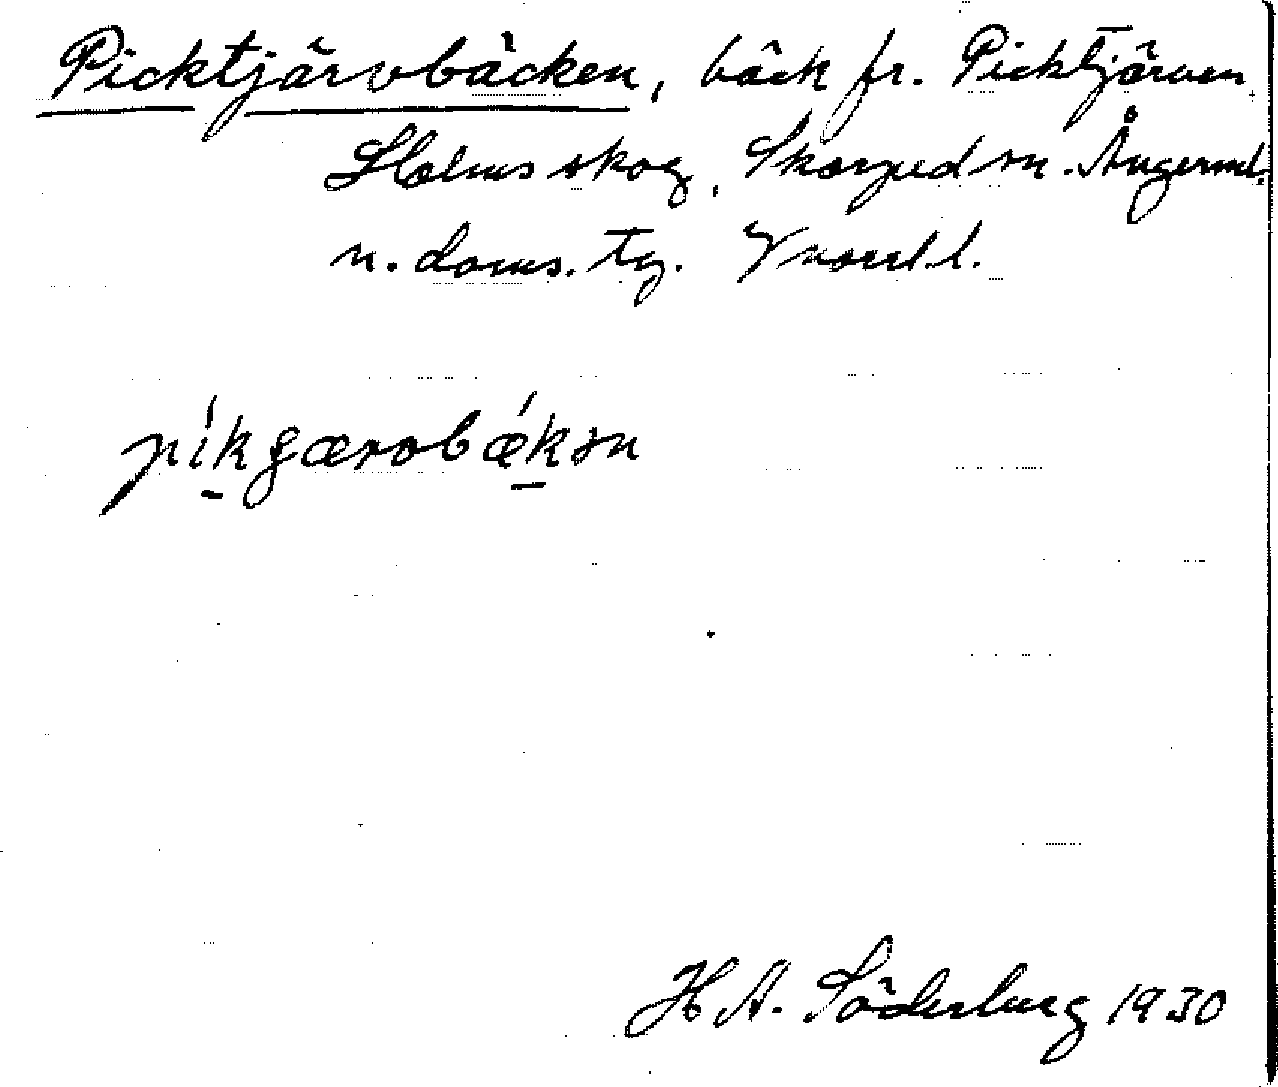 Picktjärvbäcken, bäck fr. Picktjärven
Holms skog, Skorped sn. Ångerml.
n. doms. tg. V norrl. l.
píkgærvbǽkən
H A. Söderberg 1930